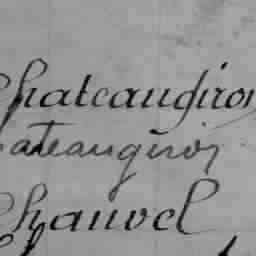 Chateaugiron
Chateaugiron
Chauvel